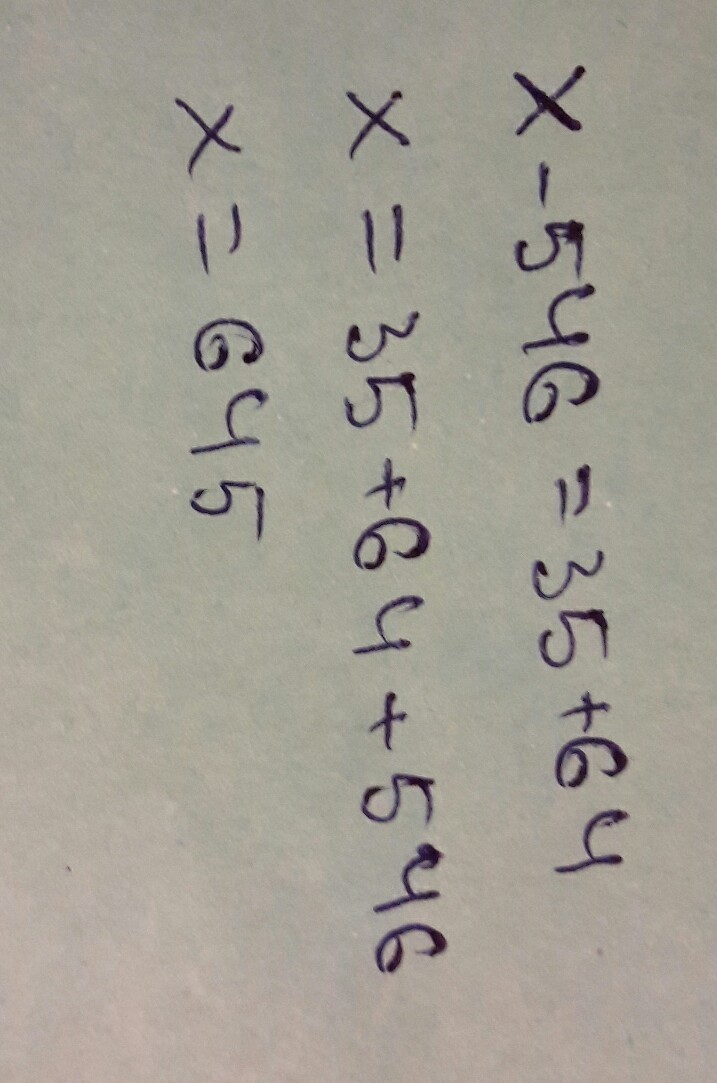 x - 546 = 35 + 64
x = 35 + 64 + 546
x = 645